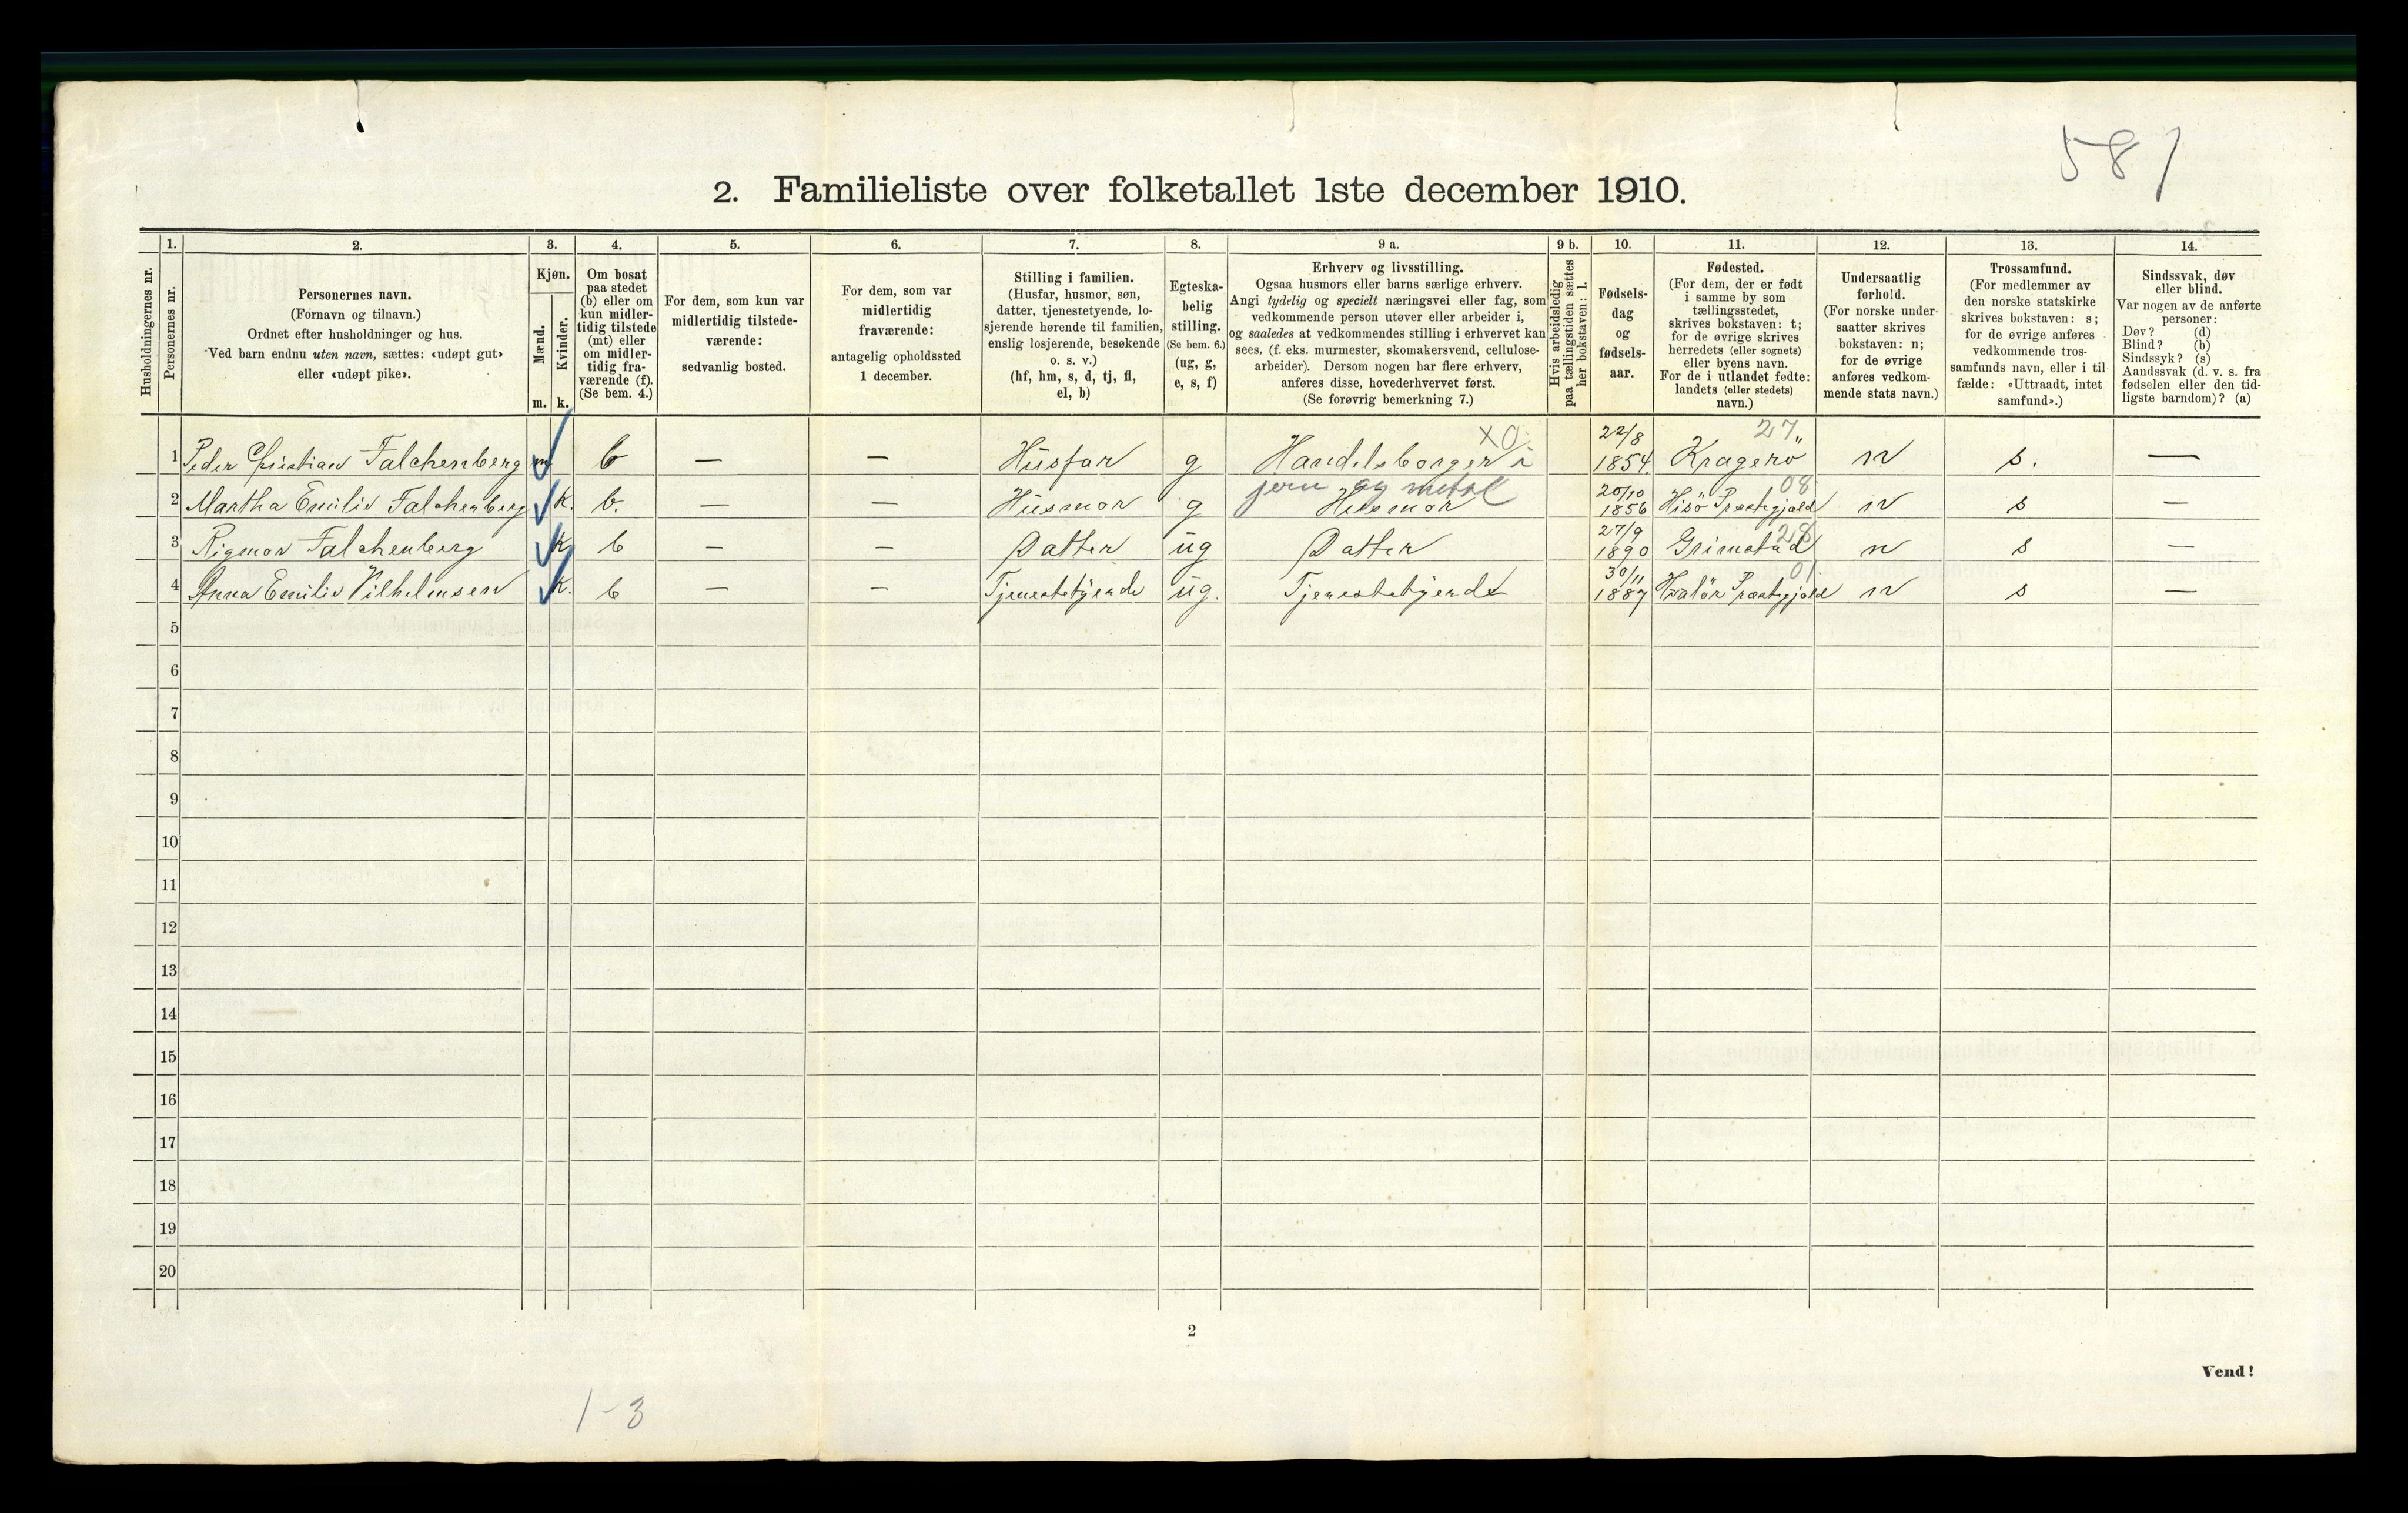 581
2. Familieliste over folketallet 1ste december 1910.
1. 2. 3. 4. 5. 6. 7. 8. 9 a. 9 b. 10. 11. 12. 13. 14.
Husholdningernes nr.
Personernes nr.
Personernes navn.
(Fornavn og tilnavn.)
Ordnet efter husholdninger og hus.
Ved barn endnu uten navn, sættes: «udøpt gut»
eller «udøpt pike».
Kjøn.
Mænd.
Kvinder.
m. k.
Om bosat
paa stedet
(b) eller om
kun midler-
tidig tilstede
(mt) eller
om midler-
tidig fra-
værende (f).
(Se bem. 4.)
For dem, som kun var
midlertidig tilstede-
værende:
sedvanlig bosted.
For dem, som var
midlertidig
fraværende:
antagelig opholdssted
1 december.
Stilling i familien.
(Husfar, husmor, søn,
datter, tjenestetyende, lo-
sjerende hørende til familien,
enslig losjerende, besøkende
o. s. v.)
(hf, hm, s, d, tj, fl,
el, b)
Egteska-
belig
stilling.
(Se bem. 6.)
(ug, g,
e, s, f)
Erhverv og livsstilling.
Ogsaa husmors eller barns særlige erhverv.
Angi tydelig og specielt næringsvei eller fag, som
vedkommende person utøver eller arbeider i,
og saaledes at vedkommendes stilling i erhvervet kan
sees, (f. eks. murmester, skomakersvend, cellulose-
arbeider). Dersom nogen har flere erhverv,
anføres disse, hovederhvervet først.
(Se forøvrig bemerkning 7.)
Hvis arbeidsledig
paa tællingstiden sættes
her bokstaven: l.
Fødsels-
dag
og
fødsels-
aar.
Fødested.
(For dem, der er født
i samme by som
tællingsstedet,
skrives bokstaven: t;
for de øvrige skrives
herredets (eller sognets)
eller byens navn.
For de i utlandet fødte:
landets (eller stedets)
navn.)
Undersaatlig
forhold.
(For norske under-
saatter skrives
bokstaven: n;
for de øvrige
anføres vedkom-
mende stats navn.)
Trossamfund.
(For medlemmer av
den norske statskirke
skrives bokstaven: s;
for de øvrige anføres
vedkommende tros-
samfunds navn, eller i til
fælde: «Uttraadt, intet
samfund».)
Sindssvak, døv
eller blind.
Var nogen av de anførte
personer:
Døv? (d)
Blind? (b)
Sindssyk? (s)
Aandssvak (d. v. s. fra
fødselen eller den tid-
ligste barndom)? (a)
X0 22/8 27
1 Peder Christian Falchenberg m b — — Husfar g Handelsborger i 1854. Kragerö n s. —
jern og metal 20/10 08
2 Martha Emilie Falchenberg k. b. — — Husmor g Husmor 1856 Hisö Præstegjeld n s —
27/9 28
3 Rigmor Falchenberg k b — — Datter ug Datter 1890 Grimstad n s —
30/11 01
4 Anna Emilie Vilhelmsen k. b — — Tjenestetyende ug. Tjenestetyende 1887 Hvalör Præstegjeld n s —
5
6
7
8
9
10
11
12
13
14
15
16
17
18
19
20
2
Vend!
1-3